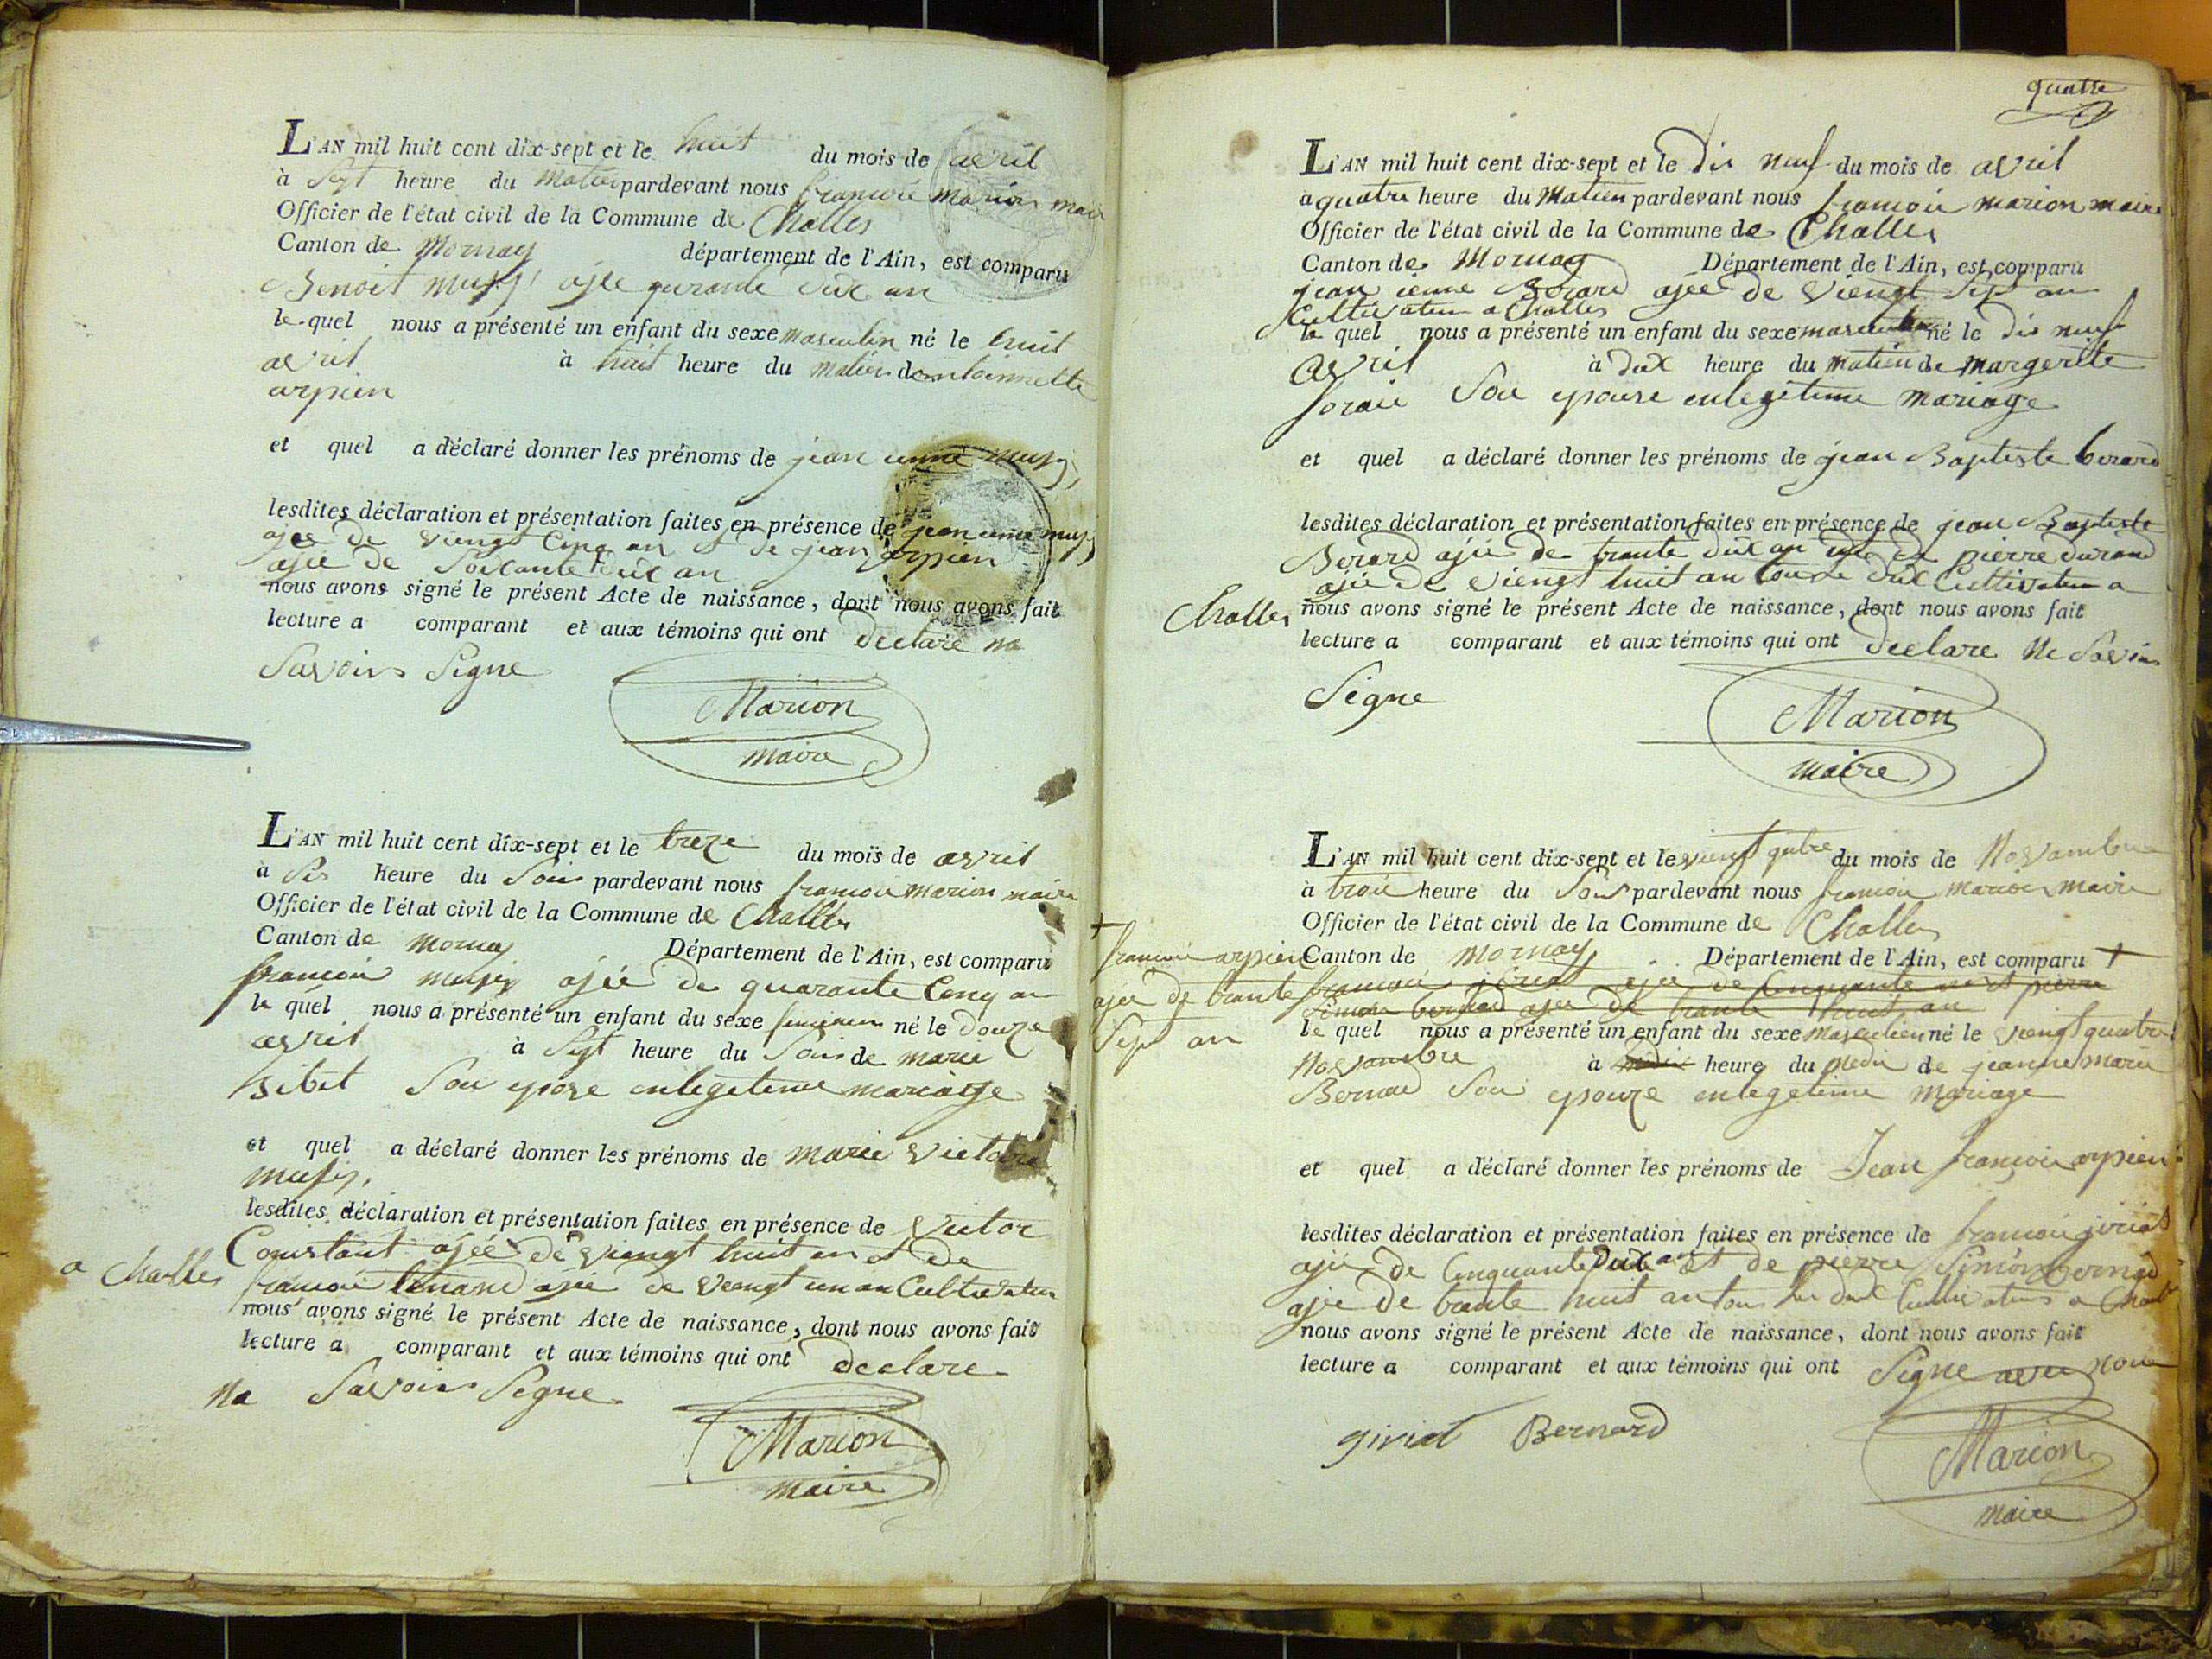 L'AN mil huit cent dix-sept et le huit du mois de avril
à Sept heure du Matin pardevant nous françois marion maire
Officier de l'état civil de la Commune de Challes
Canton de Mornay département de l'Ain, est comparu
Benoit ajee an
le quel nous a présenté un enfant du sexe masculin né le huit
avril à huit heure du matin
arpien
et quel a déclaré donner les prénoms de jean
lesdites déclaration et présentation faites en présence de jean
ajee de viengt Cinq an et de jean arpien
ajee de Soixante an
nous avons signé le présent Acte de naissance, dont nous avons fait
lecture a comparant et aux témoins qui ont declare ne
Savoir Signe
Marion
maire
L'AN mil huit cent dix-sept et le treze du mois de avril
à Sis heure du Soir pardevant nous françois marion maire
Officier de l'état civil de la Commune de Challes
Canton de Mornay Département de l'Ain, est comparu
françois ajée de quarante Cinq an
le quel nous a présenté un enfant du sexe né le Douze
avril à Sept heure du Soir de marie
Sibet Son epose enlegetime mariage
et quel a déclaré donner les prénoms de marie Victoire
lesdites déclaration et présentation faites en présence de Victor
Constant ajée de viengt huit an et de
a Challes françois ajée de viengt un an Cultivateur
nous avons signé le présent Acte de naissance, dont nous avons fait
lecture a comparant et aux témoins qui ont declare
ne Savoir Signe
Marion
maire
quatre
L'AN mil huit cent dix-sept et le Dis neuf du mois de avril
a quatre heure du Matien pardevant nous françois marion maire
Officier de l'état civil de la Commune de Challes
Canton de Mornay Département de l'Ain, est comparu
jean Berard ajee de viengt Sept an
Cultivateur a Challes
le quel nous a présenté un enfant du sexe masculin né le dis neuf
avril à dux heure du matien de margerite
Son epouse enlegitime mariage
et quel a déclaré donner les prénoms de jean Baptiste berard
lesdites déclaration et présentation faites en présence de jean Baptiste
Berard ajée de trante dux an et de pierre durand
ajée de viengt huit an Cultivateur a
Challes nous avons signé le présent Acte de naissance, dont nous avons fait
lecture a comparant et aux témoins qui ont declare ne Savoir
Signe
Marion
maire
L'AN mil huit cent dix-sept et le viengt qutre du mois de Novambre
à troie heure du Soir pardevant nous françois marion maire
Officier de l'état civil de la Commune de Challes
Canton de Mornay Département de l'Ain, est comparu +
+
françois arpien
ajee de trante
Sept an
françois jiriat ajee de Cinquante et pierre
Simon bernard ajee de trante huit an
le quel nous a présenté un enfant du sexe Masculien né le viengt quatre
Novambre à heure du Medis de jeanne marie
Bernard Son epouze enlegetime Mariage
et quel a déclaré donner les prénoms de Jean françois arpien
lesdites déclaration et présentation faites en présence de françois jiriat
ajée de Cinquante dux an et de pierre Simon bernard
ajée de trante huit an tous les dux Cultivateurs a
nous avons signé le présent Acte de naissance, dont nous avons fait
lecture a comparant et aux témoins qui ont Signe avec nous
giriat Bernard
Marion
maire